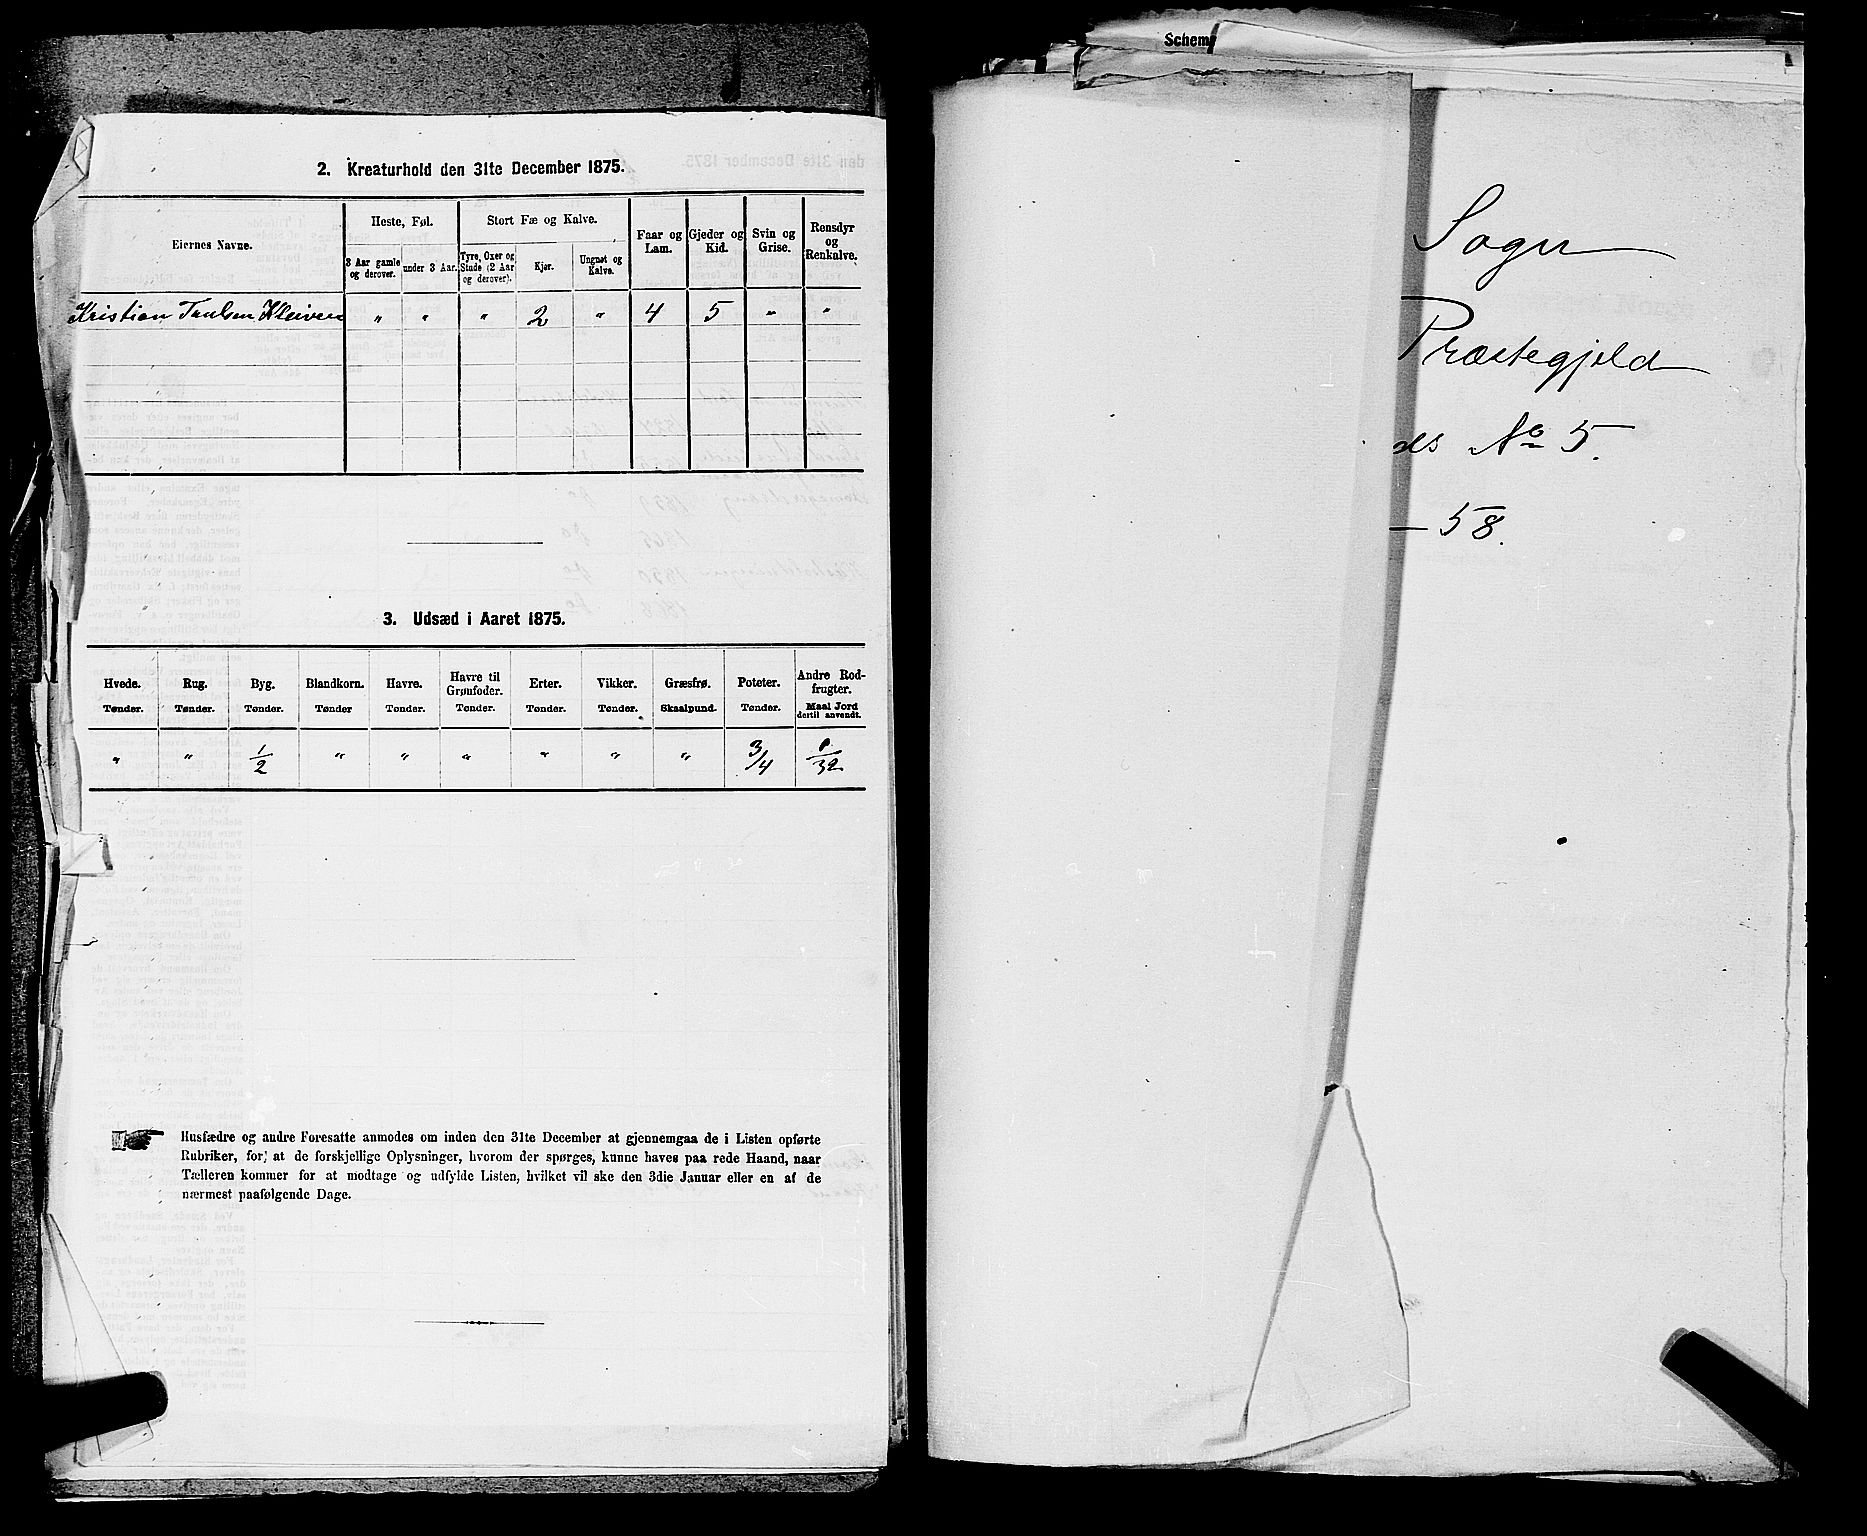 2. Kreaturhold den 31te December 1875.
Eiernes Navne.
Heste, Føl.
Stort Fæ og Kalve.
Faar og Lam.
Gjeder og Kid.
Svin og Grise.
Rensdyr og Renkalve.
3 Aar gamle og derover.
under 3 Aar.
Tyre, Oxer og Stude (2 Aar og derover).
Kjør.
Ungnøt og Kalve.
Kristian Kleiven " " " 2 " 4 5 " "
3. Udsæd i Aaret 1875.
Hvede. Rug. Byg. Blandkorn. Havre. Havre til Grønfoder. Erter. Vikker. Græsfrø. Poteter. Andre Rodfrugter.
Tønder. Tønder. Tønder. Tønder Tønder. Tønder. Tønder. Tønder. Skaalpund. Tønder. Maal Jord dertil anvendt.
" " 1/2 " " " " " " 3/4 1/32
Husfædre og andre Foresatte anmodes om inden den 31te December at gjennemgaa de i Listen opførte
Rubriker, for, at de forskjellige Oplysninger, hvorom der spørges, kunne haves paa rede Haand, naar
Tælleren kommer for at modtage og udfylde Listen, hvilket vil ske den 3die Januar eller en af de
nærmest paafølgende Dage.
Schem
Sogn
Præstegjeld
ds No 5.
— 58.